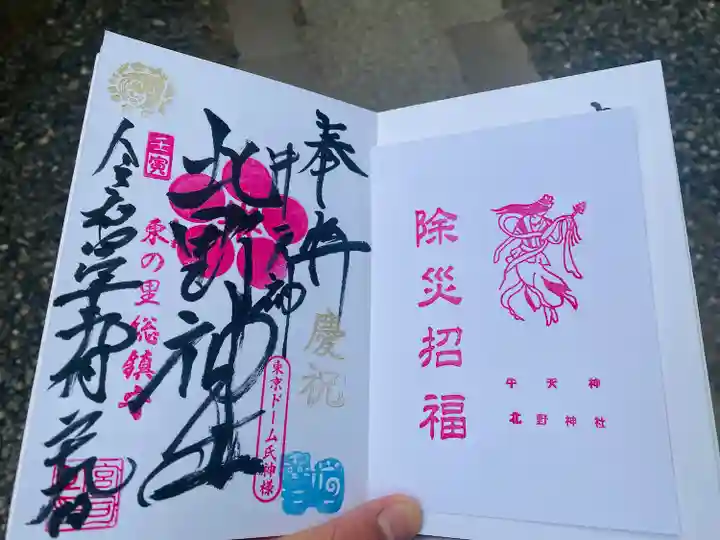 奉拝
慶祝
牛天神
北野神社
東京ドーム氏神様
壬寅
東の里総鎮守
除災招福
牛天神
北野神社